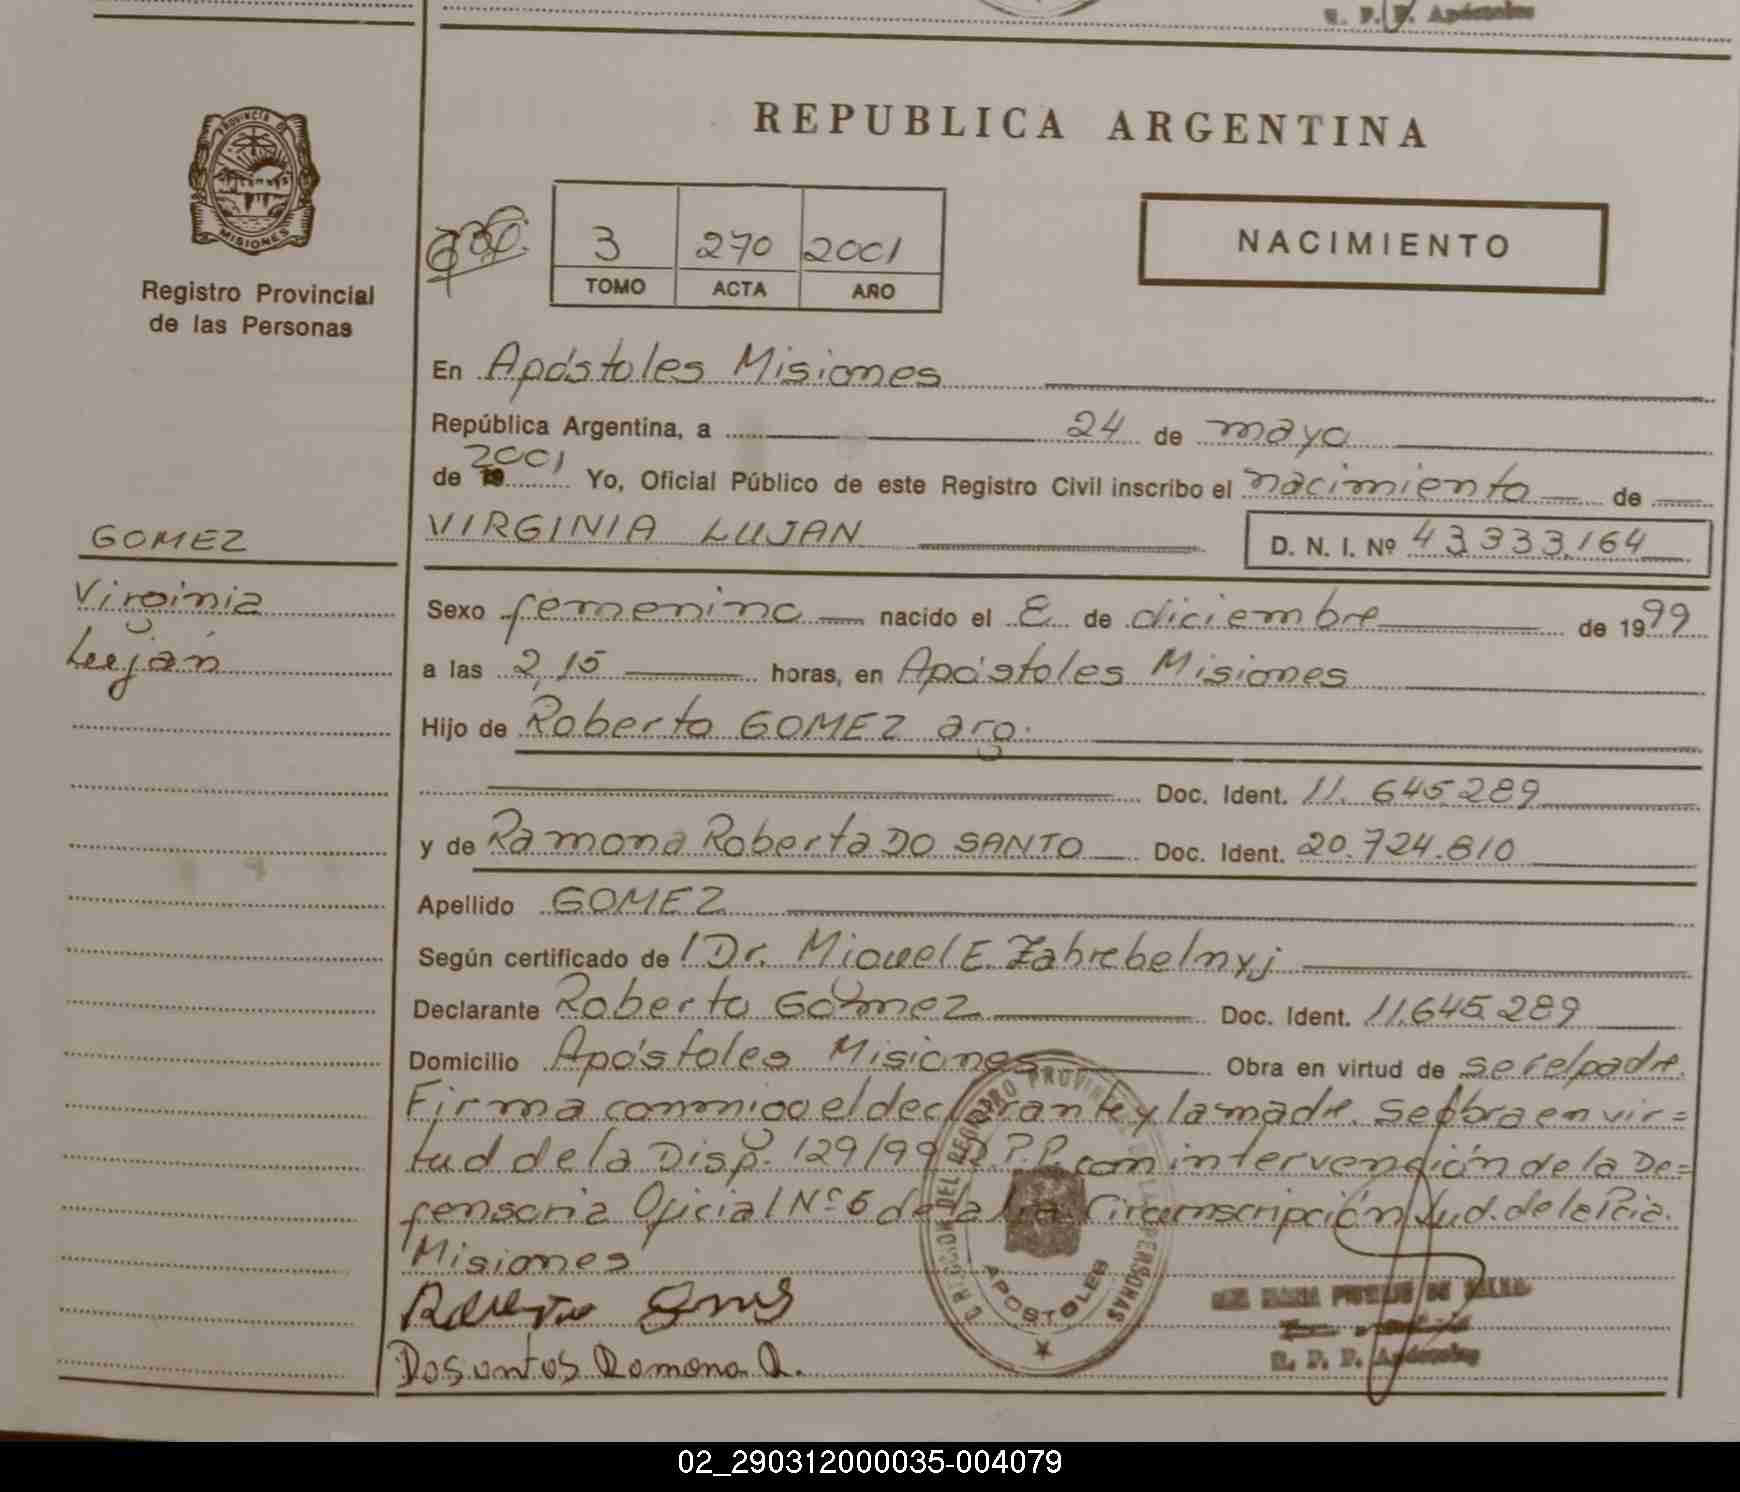 R. P. P. Apóstoles
PROVINCIA DE
MISIONES
Registro Provincial
de las Personas
REPUBLICA ARGENTINA
3 270 2001
TOMO ACTA AÑO
NACIMIENTO
En Apóstoles Misiones
República Argentina, a 24 de mayo
de 19 2001 Yo, Oficial Público de este Registro Civil inscribo el nacimiento de
GOMEZ
VIRGINIA LUJAN D. N. I. Nº 43.333.164
Virginia
Sexo femenino nacido el 8 de diciembre de 1999
Luján
a las 2,15 horas, en Apóstoles Misiones
Hijo de Roberto GOMEZ arg.
Doc. Ident. 11.645.289
y de Ramona Roberta DO SANTO Doc. Ident. 20.724.810
Apellido GOMEZ
Según certificado de Dr. Miguel E. Zabrebelnyj
Declarante Roberto Gómez Doc. Ident. 11.645.289
Domicilio Apóstoles Misiones Obra en virtud de ser el padre.
Firma conmigo el declarante y la madre. Se obra en vir=
tud de la Disp. 129/99 R.P.P. con intervención de la De=
fensoria Oficial Nº 5 de la 1ra. Circunscripción Jud. de la Pcia.
Misiones
APOSTOLES
Dosantos Ramona R.
R. P. P. Apóstoles
02_290312000035-004079